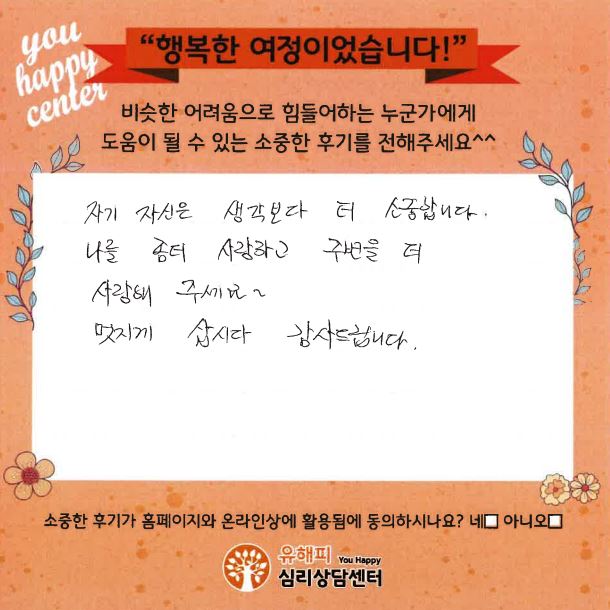 you
happy
center
“행복한 여정이었습니다!”
비슷한 어려움으로 힘들어하는 누군가에게
도움이 될 수 있는 소중한 후기를 전해주세요^^
자기 자신은 생각보다 더 소중합니다.
나를 좀더 사랑하고 주변을 더
사랑해 주세요~
멋지게 삽시다 감사드립니다.
소중한 후기가 홈페이지와 온라인상에 활용됨에 동의하시나요? 네□ 아니오□
유해피 You Happy
심리상담센터